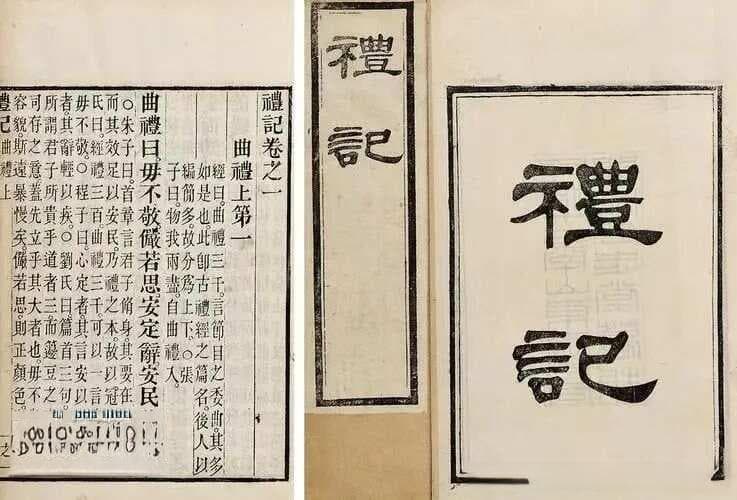 禮記
禮記
禮記卷之一
曲禮上第一
經曰。曲禮三千。言節目之委曲。其多
如是也。此卽古禮經之篇名。後人以
編簡多。故分爲上下。○張
子曰。物我兩盡。自曲禮入。
曲禮曰。毋不敬。儼若思。安定辭。安民
○朱子曰。首章言君子脩身。其要在
而其效足以安民。乃禮之本。故以冠
氏曰。經禮三百。曲禮三千。可以一言
毋不敬。○程子曰。心定者。其言安以
者。其辭輕以疾。○劉氏曰。篇首三句。
所謂君子所貴乎道者三。而籩豆之
司存之意。蓋先立乎其大者也。毋不
容貌。斯遠暴慢矣。儼若思。則正顏色。
禮記 曲禮上